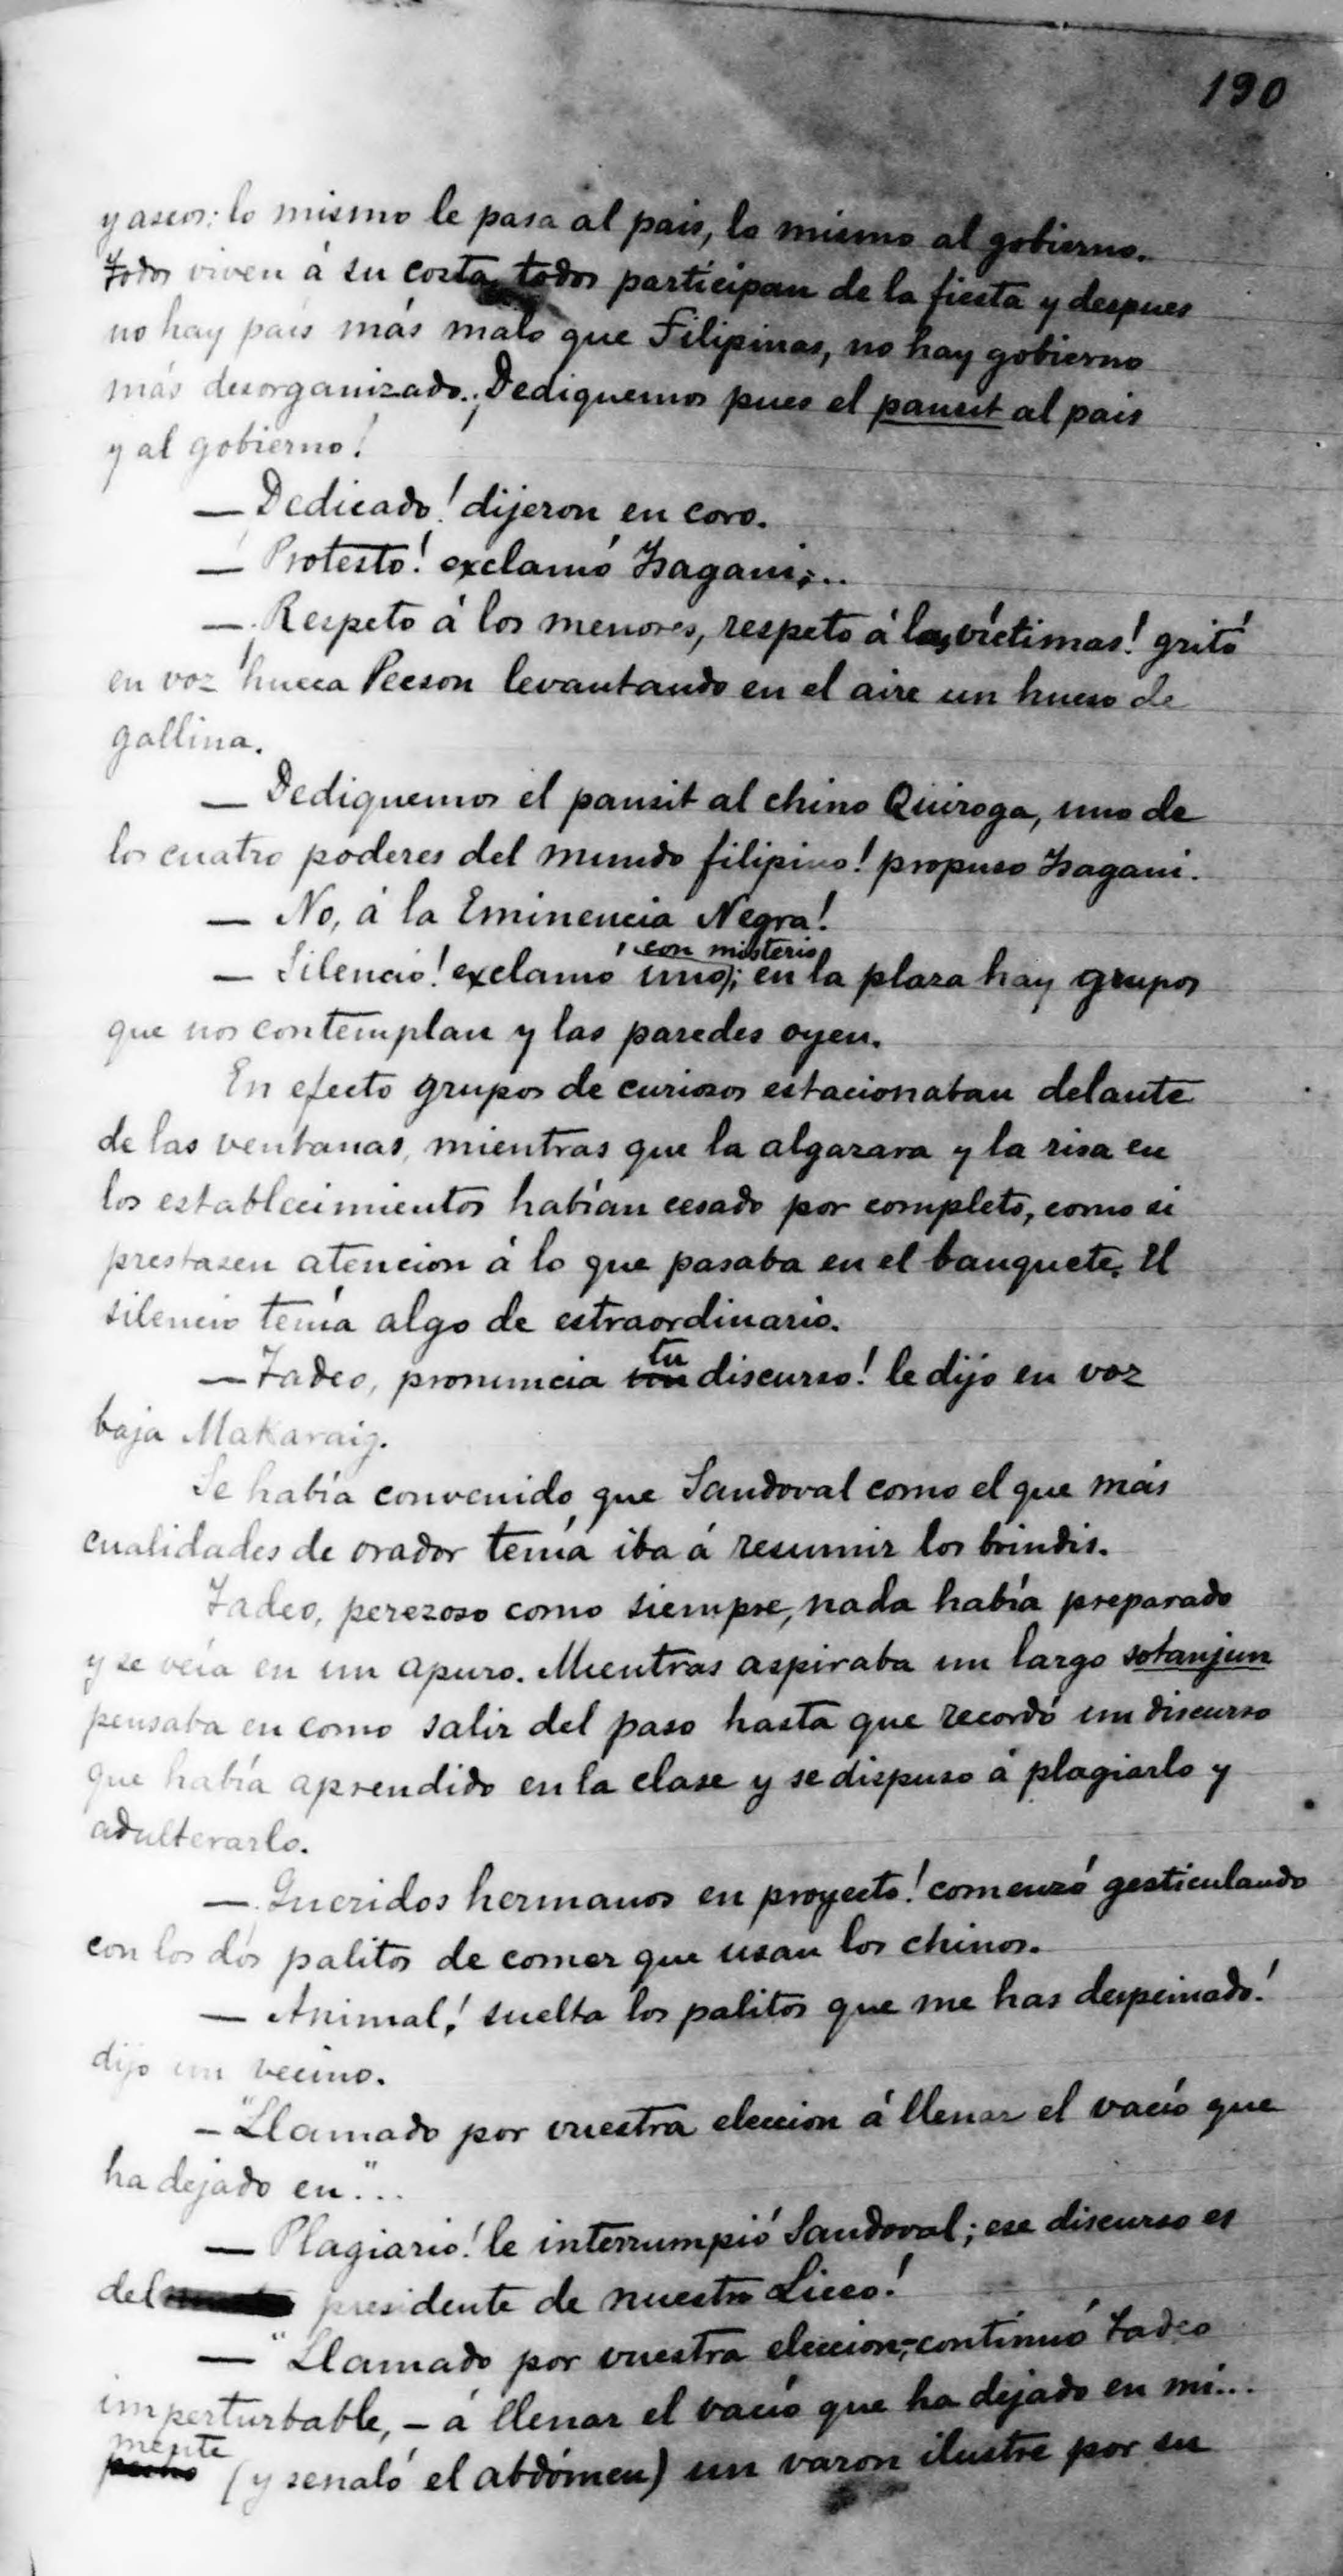 190
y ascos: lo mismo le pasa al pais, lo mismo al gobierno.
Todos viven á su costa, todos participan de la fiesta y despues
no hay país más malo que Filipinas, no hay gobierno
más desorganizado. ¡Dediquemos pues el pansit al pais
y al gobierno!
— Dedicado! dijeron en coro.
— ¡Protesto! exclamó Isagani;...
— ¡Respeto á los menores, respeto á las víctimas! gritó
en voz hueca Pecson levantando en el aire un hueso de
gallina.
— Dediquemos el pansit al chino Quiroga, uno de
los cuatro poderes del mundo filipino! propuso Isagani.
— No, á la Eminencia Negra!
con misterio
— Silencio! exclamó uno; en la plaza hay grupos
que nos contemplan y las paredes oyen.
En efecto grupos de curiosos estacionaban delante
de las ventanas, mientras que la algazara y la risa en
los establecimientos habían cesado por completo, como si
prestasen atencion á lo que pasaba en el banquete. El
silencio tenía algo de estraordinario.
tu
— Tadeo, pronuncia discurso! le dijo en voz
baja Makaraig.
Se había convenido que Sandoval como el que más
cualidades de orador tenía iba á resumir los brindis.
Tadeo, perezoso como siempre, nada había preparado
y se veía en un apuro. Mientras aspiraba un largo sotanjun
pensaba en como salir del paso hasta que recordó un discurso
que había aprendido en la clase y se dispuso á plagiarlo y
adulterarlo.
— ¡Queridos hermanos en proyecto! comenzó gesticulando
con los dos palitos de comer que usan los chinos.
— Animal! suelta los palitos que me has despeinado!
dijo un vecino.
— "Llamado por vuestra eleccion á llenar el vacío que
ha dejado en"...
— Plagiario! le interrumpió Sandoval; ese discurso es
del presidente de nuestro Liceo!
— "Llamado por vuestra eleccion,-continuó Tadeo
imperturbable, — á llenar el vacío que ha dejado en mi...
mente
(y señaló el abdómen) un varon ilustre por su